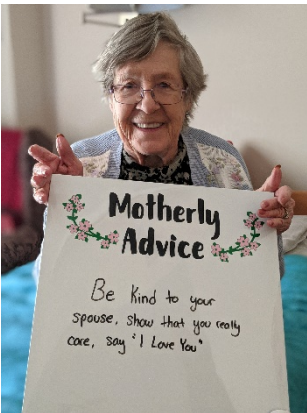 Motherly
Advice
Be Kind to your
spouse, show that you really
care, say "I Love You"